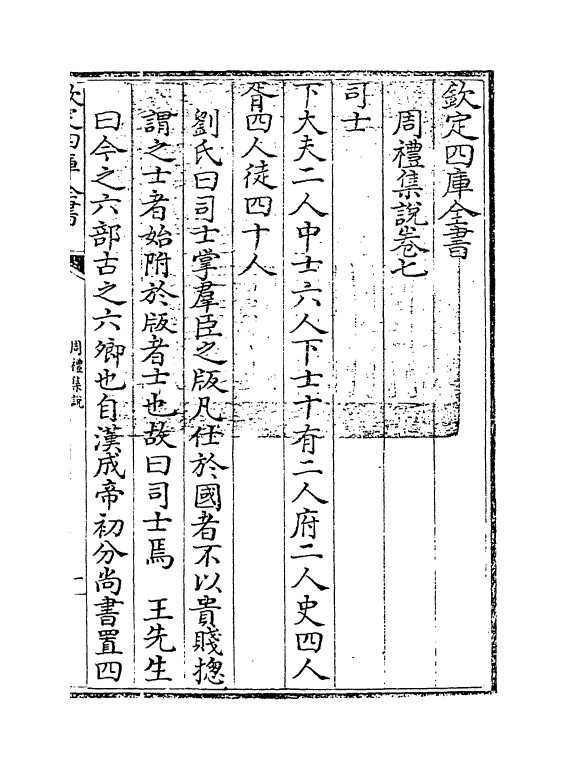 欽定四庫全書
周禮集說卷七
司士
下大夫二人中士六人下士十有二人府二人史四人
胥四人徒四十人
劉氏曰司士掌羣臣之版凡仕於國者不以貴賤揔
謂之士者始附於版者士也故曰司士焉　王先生
曰今之六部古之六卿也自漢成帝初分尚書置四
欽定四庫全書
周禮集說
一